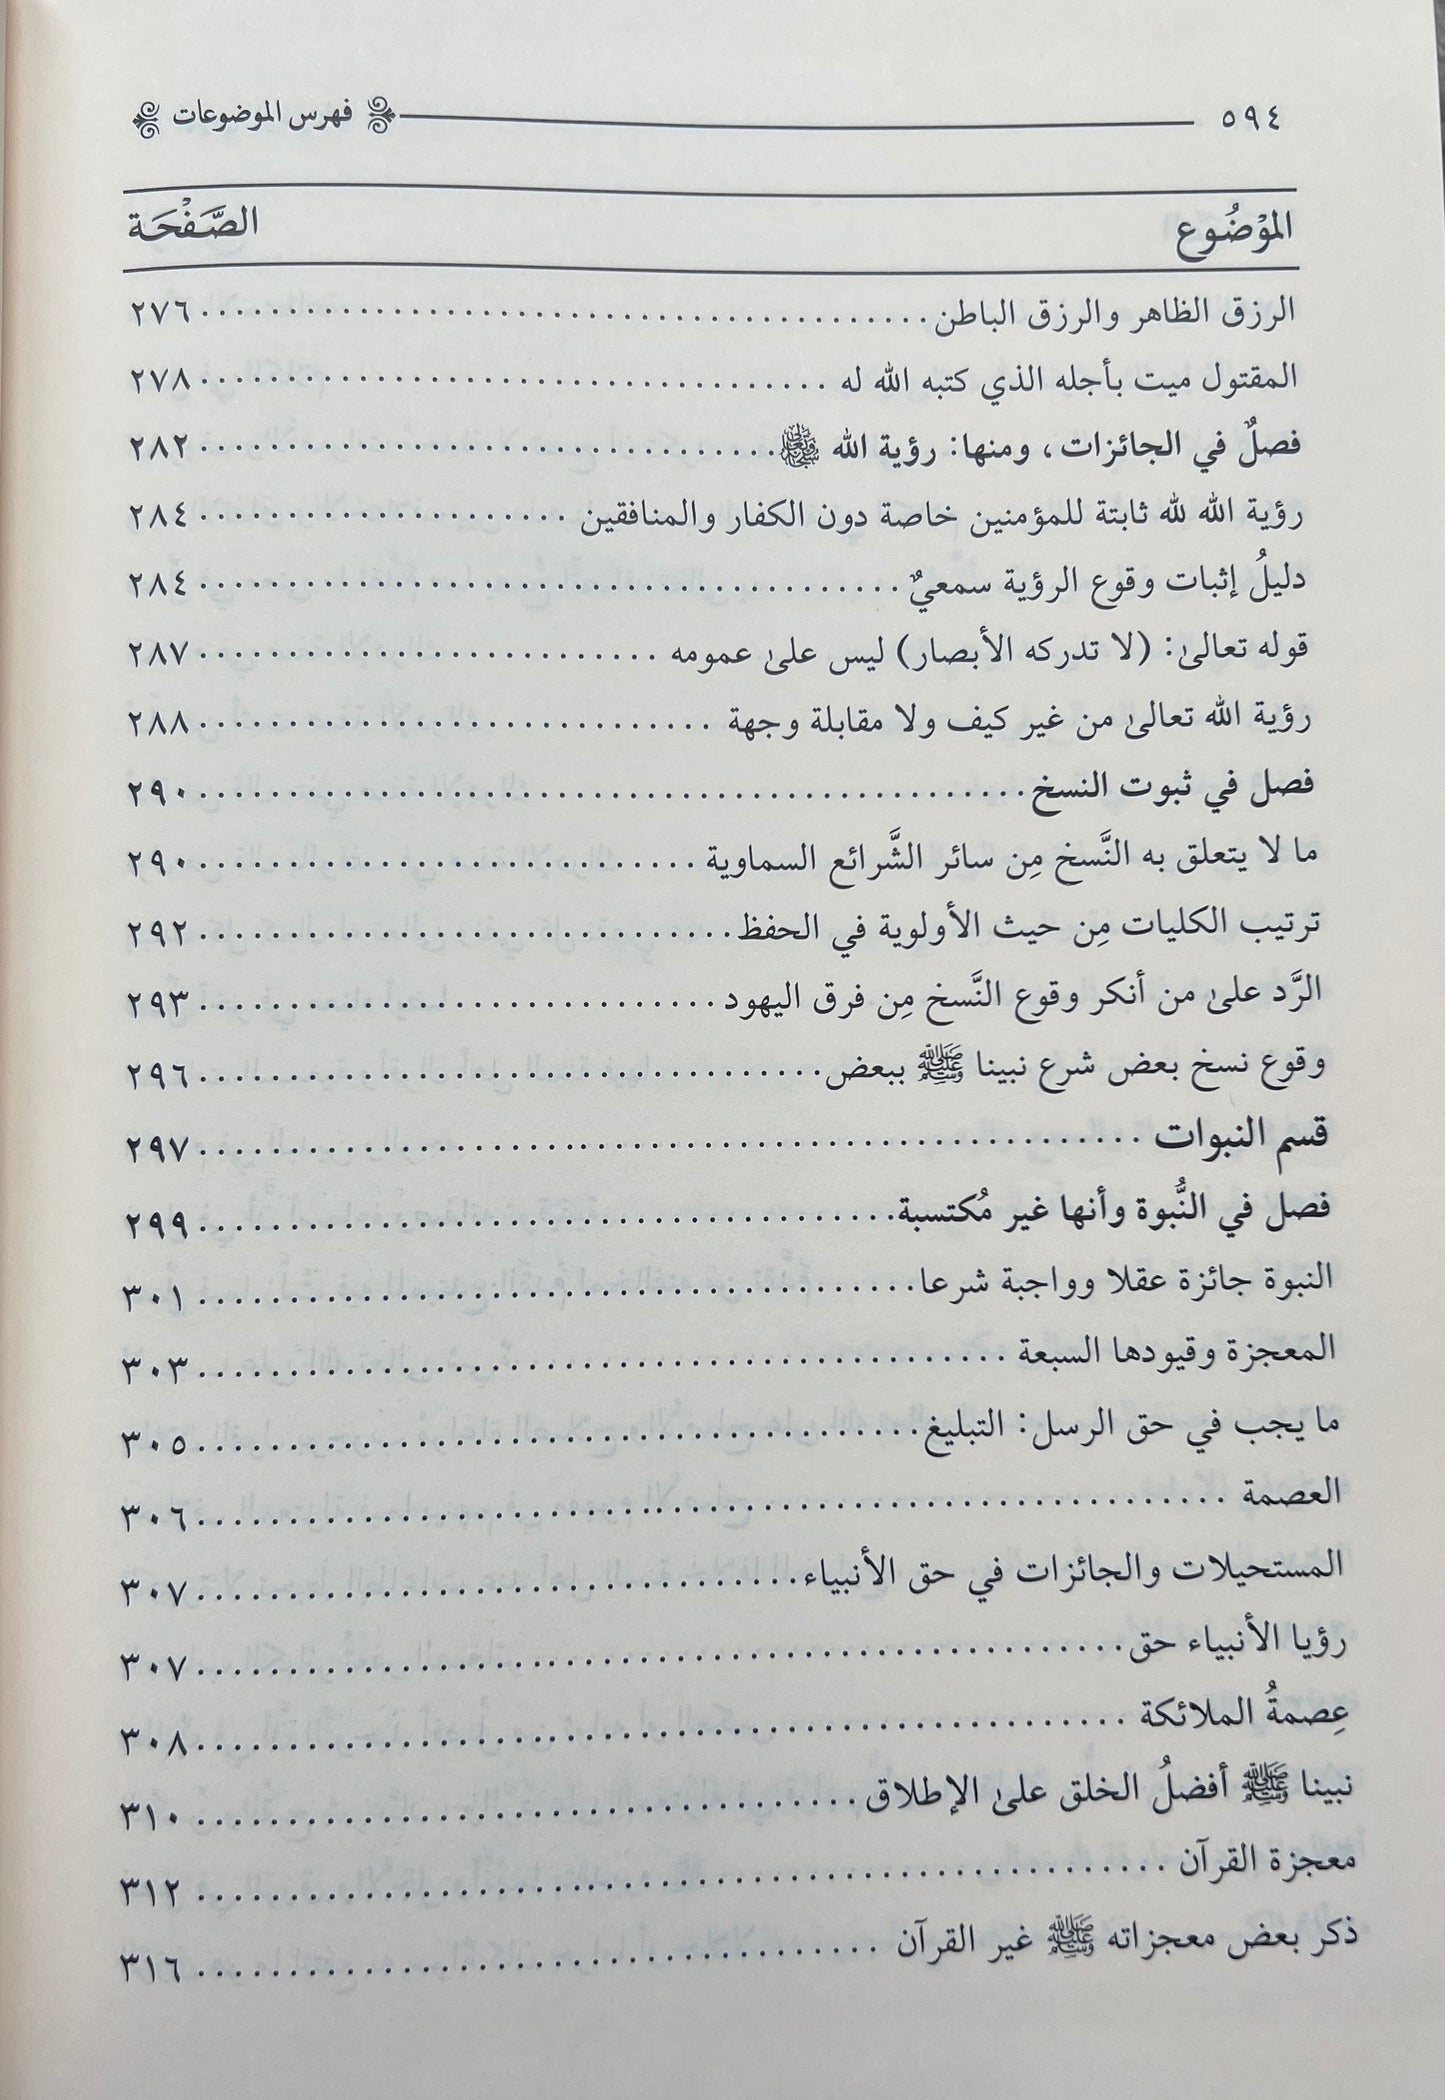 ٥٩٤ فهرس الموضوعات
المَوْضُوع الصَّفْحَة
الرزق الظاهر والرزق الباطن ٢٧٦
المقتول ميت بأجله الذي كتبه الله له ٢٧٨
فصلٌ في الجائزات، ومنها: رؤية الله ٢٨٢
رؤية الله لله ثابتة للمؤمنين خاصة دون الكفار والمنافقين ٢٨٤
دليلُ إثبات وقوع الرؤية سمعيٌ ٢٨٤
قوله تعالىٰ: (لا تدركه الأبصار) ليس علىٰ عمومه ٢٨٧
رؤية الله تعالىٰ من غير كيف ولا مقابلة وجهة ٢٨٨
فصل في ثبوت النسخ ٢٩٠
ما لا يتعلق به النَّسخ مِن سائر الشَّرائع السماوية ٢٩٠
ترتيب الكليات مِن حيث الأولوية في الحفظ ٢٩٢
الرَّد علىٰ من أنكر وقوع النَّسخ مِن فرق اليهود ٢٩٣
وقوع نسخ بعض شرع نبينا ﷺ ببعض ٢٩٦
قسم النبوات ٢٩٧
فصل في النُّبوة وأنها غير مُكتسبة ٢٩٩
النبوة جائزة عقلا وواجبة شرعا ٣٠١
المعجزة وقيودها السبعة ٣٠٣
ما يجب في حق الرسل: التبليغ ٣٠٥
العصمة ٣٠٦
المستحيلات والجائزات في حق الأنبياء ٣٠٧
رؤيا الأنبياء حق ٣٠٧
عِصمةُ الملائكة ٣٠٨
نبينا ﷺ أفضلُ الخلق علىٰ الإطلاق ٣١٠
معجزة القرآن ٣١٢
ذكر بعض معجزاته ﷺ غير القرآن ٣١٦